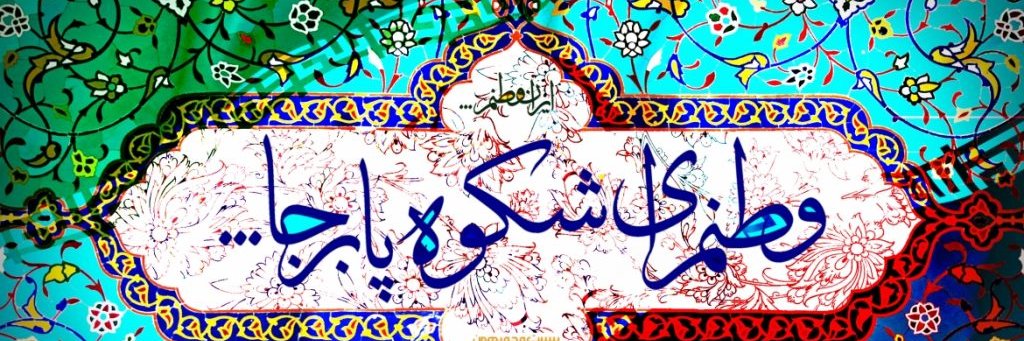 ایران وطنم...
وطنم ای شکوه پابرجا...